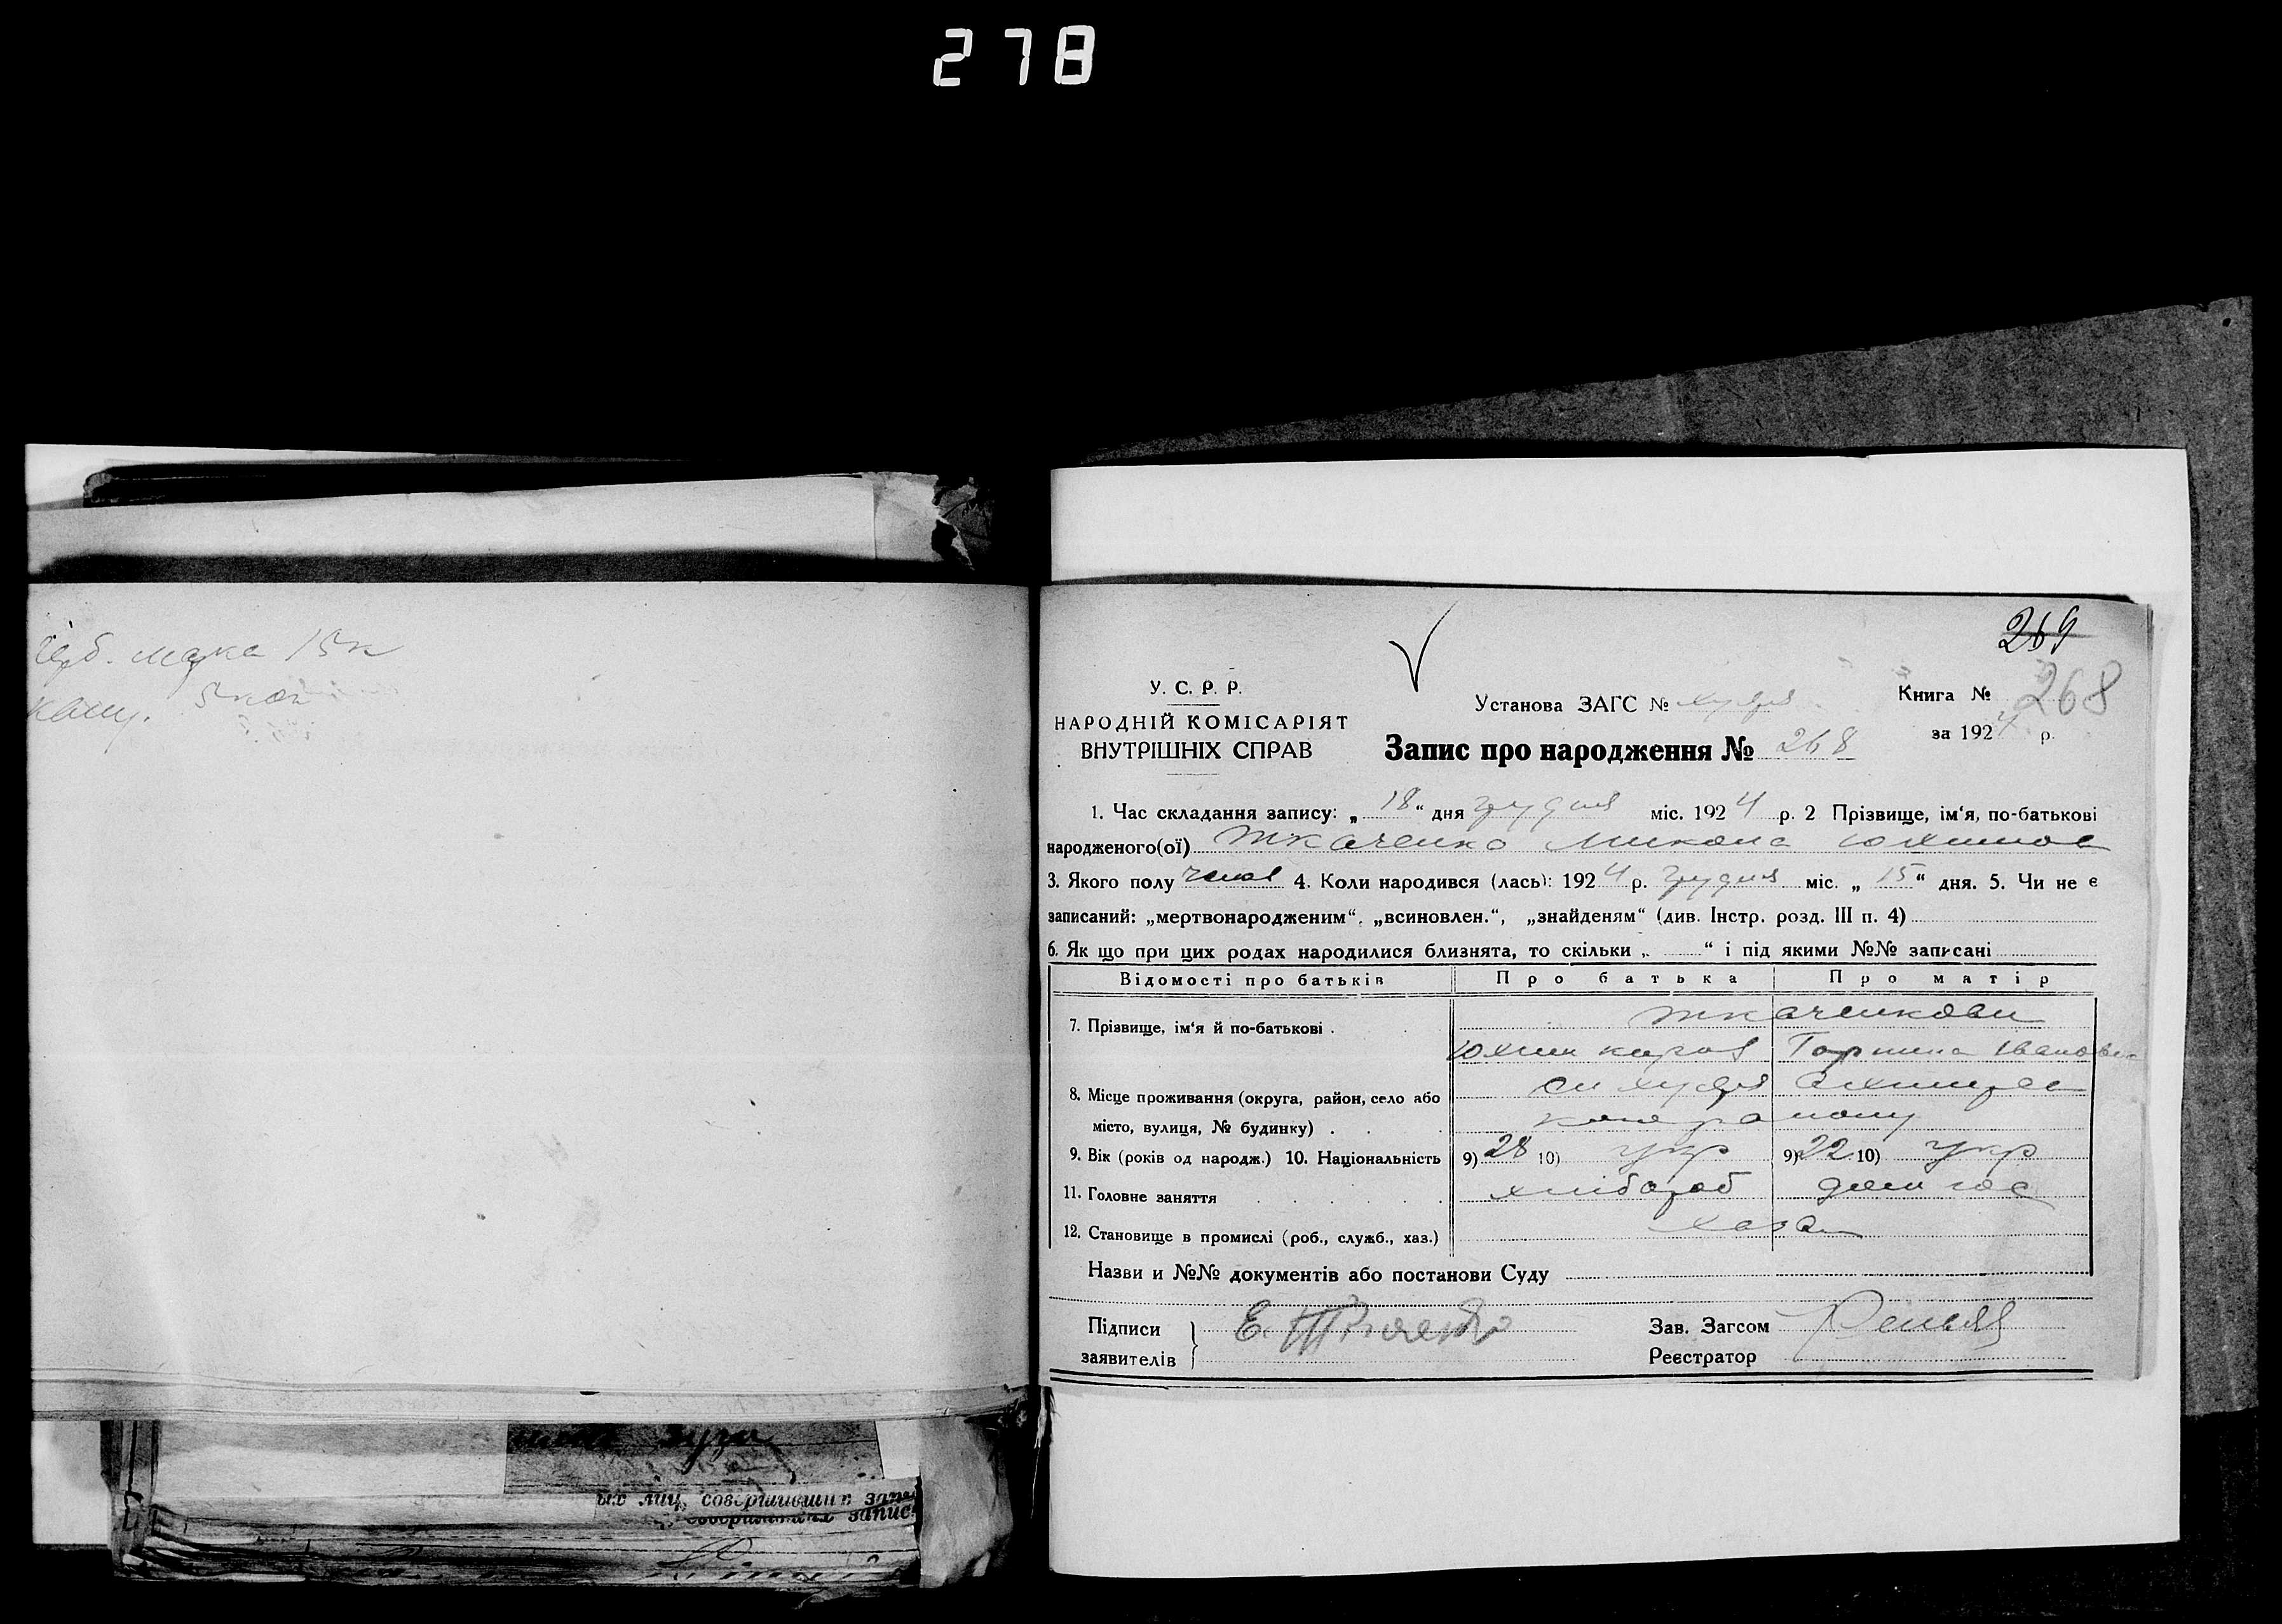 278
герб. марка 15к
канц. 5 коп
269
268
У. С. Р. Р.
НАРОДНІЙ КОМІСАРІЯТ
ВНУТРІШНІХ СПРАВ
Установа ЗАГС №
Книга №
за 1924 р.
Запис про народження № 268
1. Час складання запису: „ 18 “ дня грудня міс. 1924 р. 2 Прізвище, ім'я, по-батькові
народженого(ої) Ткаченко Микола Юхимов
3. Якого полу чолов 4. Коли народився (лась): 1924 р. грудня міс. „ 15 “ дня. 5. Чи не є
записаний: „мертвонародженим“, „всиновлен.“, „знайденям“ (див. Інстр. розд. III п. 4)
6. Як що при цих родах народилися близнята, то скільки „ “ і під якими №№ записані
Відомості про батьків Про батька Про матір
7. Прізвище, ім'я й по-батькові . Ткаченкови
Юхим Горпина Іванов
8. Місце проживання (округа, район, село або
місто, вулиця, № будинку) .
9. Вік (років од народж.) 10. Національність 9) 28 10) укр 9) 22 10) укр
11. Головне заняття хлібороб дом гос
12. Становище в промислі (роб., служб., хаз.) хазяи
Назви и №№ документів або постанови Суду
Підписи Е. Ткаченко Зав. Загсом
заявителів Реєстратор
ых лиц, совершивших запис
совершивших запис